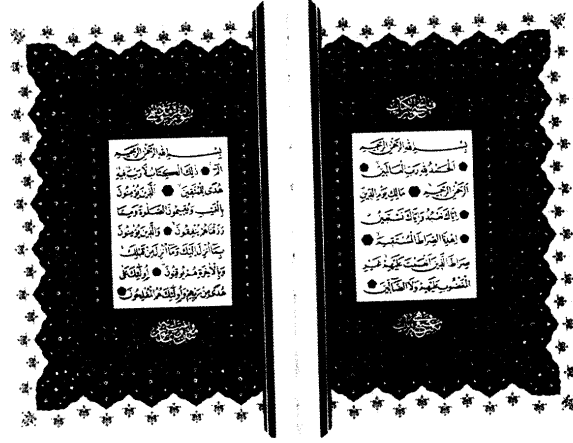 بسم الله الرحمن الرحيم
الحمد لله رب العالمين
الرحمن الرحيم مالك يوم الدين
إياك نعبد وإياك نستعين
اهدنا الصراط المستقيم
صراط الذين أنعمت عليهم غير
المغضوب عليهم ولا الضالين
بسم الله الرحمن الرحيم
الم ذلك الكتاب لا ريب فيه
هدى للمتقين الذين يؤمنون
بالغيب ويقيمون الصلوة ومما
رزقناهم ينفقون والذين يؤمنون
بما أنزل إليك وما أنزل من قبلك
وبالآخرة هم يوقنون أولئك على
هدى من ربهم وأولئك هم المفلحون